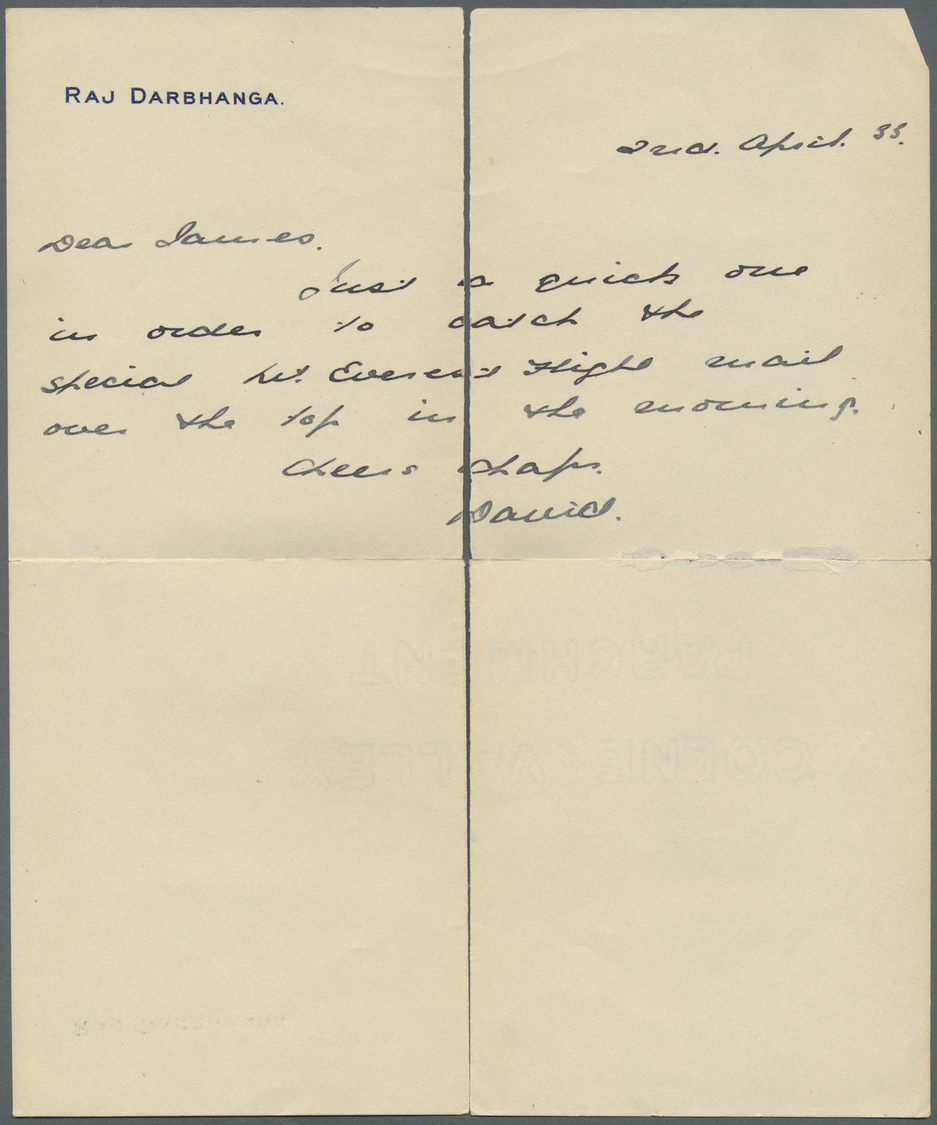 RAJ DARBHANGA.
2nd. April. 33.
Dear James.
Just a quick one
in order to catch the
special Mt. Everest Flight mail
over the top in the morning.
Cheers chaps.
David.
PARCHMENT
COLNE VALLEY
RAJ DARBHANGA.